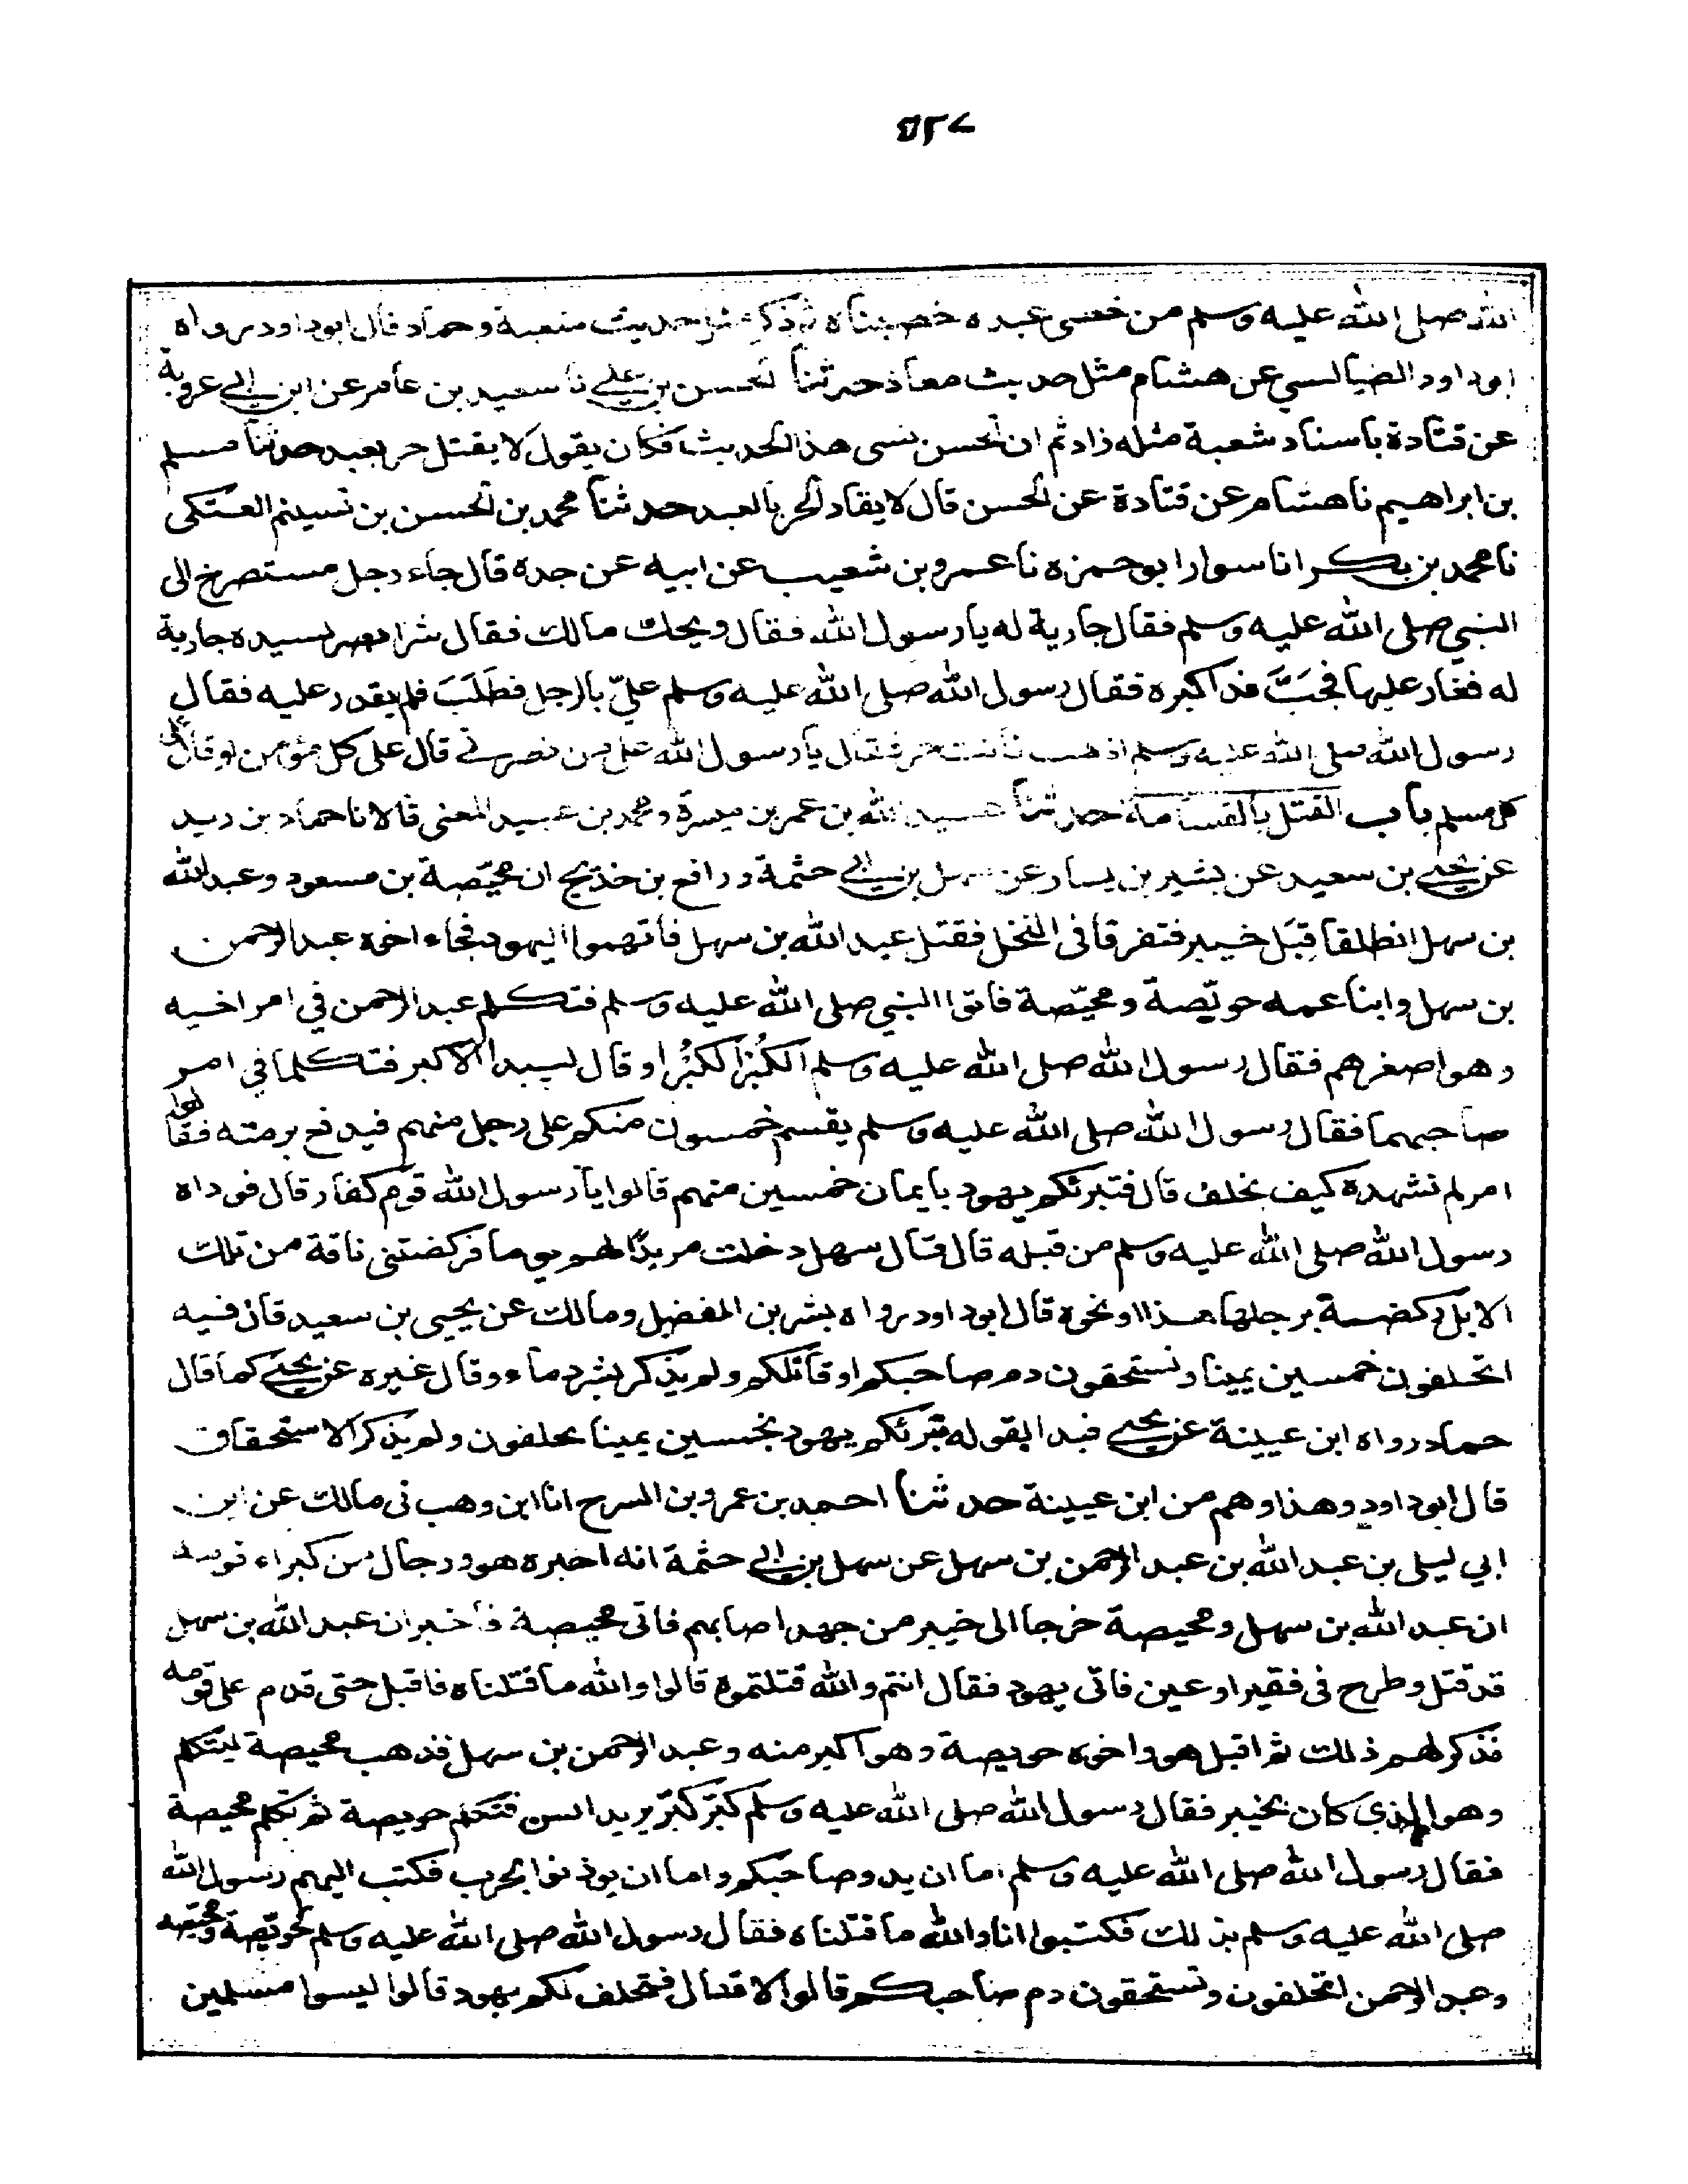 ٥٢٧
الله صلى الله عليه وسلم من خصى عبده خصيناه ثم ذكر مثل حديث شعبة وحماد قال ابوداود رواه
ابوداود الطيالسي عن هشام مثل حديث معاذ حدثنا الحسن بن علي نا سعيد بن عامر عن ابن ابي عروبة
عن قتادة باسناد شعبة مثله زاد ثم ان الحسن نسى هذا الحديث فكان يقول لا يقتل حر بعبد حدثنا مسلم
بن ابراهيم نا هشام عن قتادة عن الحسن قال لا يقاد الحر بالعبد حدثنا محمد بن الحسن بن تسنيم العتكى
نا محمد بن بكر انا سوار ابو حمزه نا عمرو بن شعيب عن ابيه عن جده قال جاء رجل مستصرخ الى
النبي صلى الله عليه وسلم فقال جارية له يا رسول الله فقال ويحك مالك فقال شرا بصر لسيده جارية
له فغار عليها فجَبَّ مذاكيره فقال رسول الله صلى الله عليه وسلم عليّ بالرجل فطَلَبَ فلم يقدر عليه فقال
رسول الله صلى الله عليه وسلم اذهب فانت حر فقال يا رسول الله على من نصرتي قال على كل مؤمن او قال على
كل مسلم باب القتل بالقسامة حدثنا عبيد الله بن عمر بن ميسرة ومحمد بن عبيد المعنى قالا نا حماد بن زيد
عن يحيى بن سعيد عن بشير بن يسار عن سهل بن ابي حثمة ورافع بن خديج ان محيّصة بن مسعود وعبد الله
بن سهل انطلقا قِبَل خيبر فتفرقا فى النخل فقتل عبد الله بن سهل فاتهموا اليهود فجاء اخوه عبد الرحمن
بن سهل وابنا عمه حويّصة ومحيّصة فاتوا النبي صلى الله عليه وسلم فتكلم عبد الرحمن في امر اخيه
وهو اصغرهم فقال رسول الله صلى الله عليه وسلم الكُبْرَ الكُبْرَ او قال ليبدا الاكبر فتكلما في امر
صاحبهما فقال رسول الله صلى الله عليه وسلم يقسم خمسون منكم على رجل منهم فيدفع برمته فقالوا
امر لم نشهده كيف نحلف قال فتبرئكم يهود بايمان خمسين منهم قالوا يا رسول الله قوم كفار قال فوداه
رسول الله صلى الله عليه وسلم من قبله قال قال سهل دخلت مربدًا لهم يوما فركضتنى ناقة من تلك
الابل ركضة برجلها هذا او نحوه قال ابوداود رواه بشر بن المفضل ومالك عن يحيى بن سعيد قال فيه
اتحلفون خمسين يمينا وتستحقون دم صاحبكم او قاتلكم ولم يذكر بشر دماء وقال غيره عن يحيى كما قال
حماد ورواه ابن عيينة عن يحيى فبدا بقوله تبرئكم يهود بخمسين يمينا يحلفون ولم يذكر الاستحقاق
قال ابوداود وهذا وهم من ابن عيينة حدثنا احمد بن عمرو بن السرح انا ابن وهب نى مالك عن ابن
ابي ليلى بن عبد الله بن عبد الرحمن بن سهل عن سهل بن ابي حثمة انه اخبره هو ورجال من كبراء قومه
ان عبد الله بن سهل ومحيصة خرجا الى خيبر من جهد اصابهم فاتى محيصة فاخبر ان عبد الله بن سهل
قد قتل وطرح فى فقير او عين فاتى يهود فقال انتم والله قتلتموه قالوا والله ما قتلناه فاقبل حتى قدم على قومه
فذكر لهم ذلك ثم اقبل هو واخوه حويصة وهو اكبر منه وعبد الرحمن بن سهل فذهب محيصة ليتكلم
وهو الذي كان بخيبر فقال رسول الله صلى الله عليه وسلم كبّر كبّر يريد السن فتكلم حويصة ثم تكلم محيصة
فقال رسول الله صلى الله عليه وسلم اما ان يدوا صاحبكم واما ان يوذنوا بحرب فكتب اليهم رسول الله
صلى الله عليه وسلم بذلك فكتبوا انا والله ما قتلناه فقال رسول الله صلى الله عليه وسلم لحويّصة ومحيّصة
وعبد الرحمن اتحلفون وتستحقون دم صاحبكم قالوا لا قال فتحلف لكم يهود قالوا ليسوا مسلمين